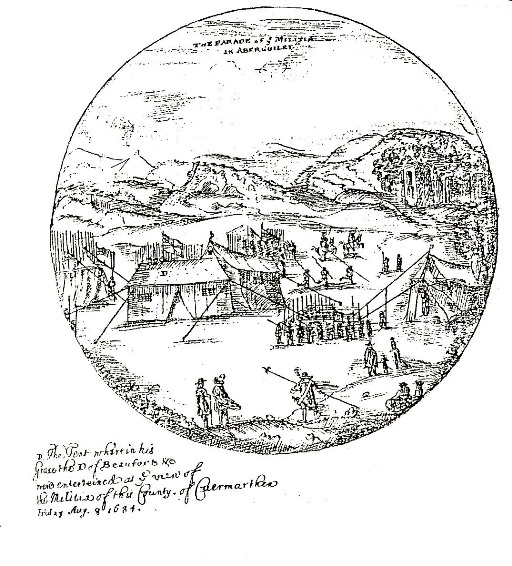 THE PARADE of ye MILITIA
IN ABERGUILEY
D
D. The Tent wherein his
Grace the D of Beaufort &c
was entertained at ye view of
the Militia of this County of Caermarthen
Friday Aug. 8 1684.